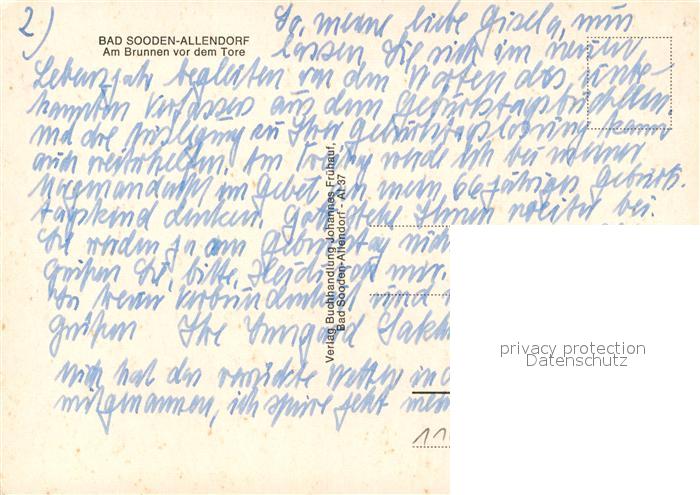 2)
BAD SOODEN-ALLENDORF
Am Brunnen vor dem Tore
So, meine liebe Gisela, nun
lassen Sie sich im neuen
Lebensjahr begleiten von den Worten des unbe-
kannten Verfassers aus dem Geburtstagsbüchlein,
und die Auslegung zu Ihrer Geburtstagslosung kann
auch weiterhelfen. Am werde ich bei meiner
Morgenandacht im Gebet an mein 66 jähriges Geburts-
tagskind denken. Gott stehe Ihnen weiter bei.
Sie werden ja am Geburtstag nicht
Grüßen Sie, bitte, von mir.
In treuer Verbundenheit und
Grüßen Ihre Irmgard
Mich hat das verrückte Wetter in
mitgenommen, ich spüre jetzt
Verlag Buchhandlung Johannes Frühauf,
Bad Sooden-Allendorf - At 37
privacy protection
Datenschutz